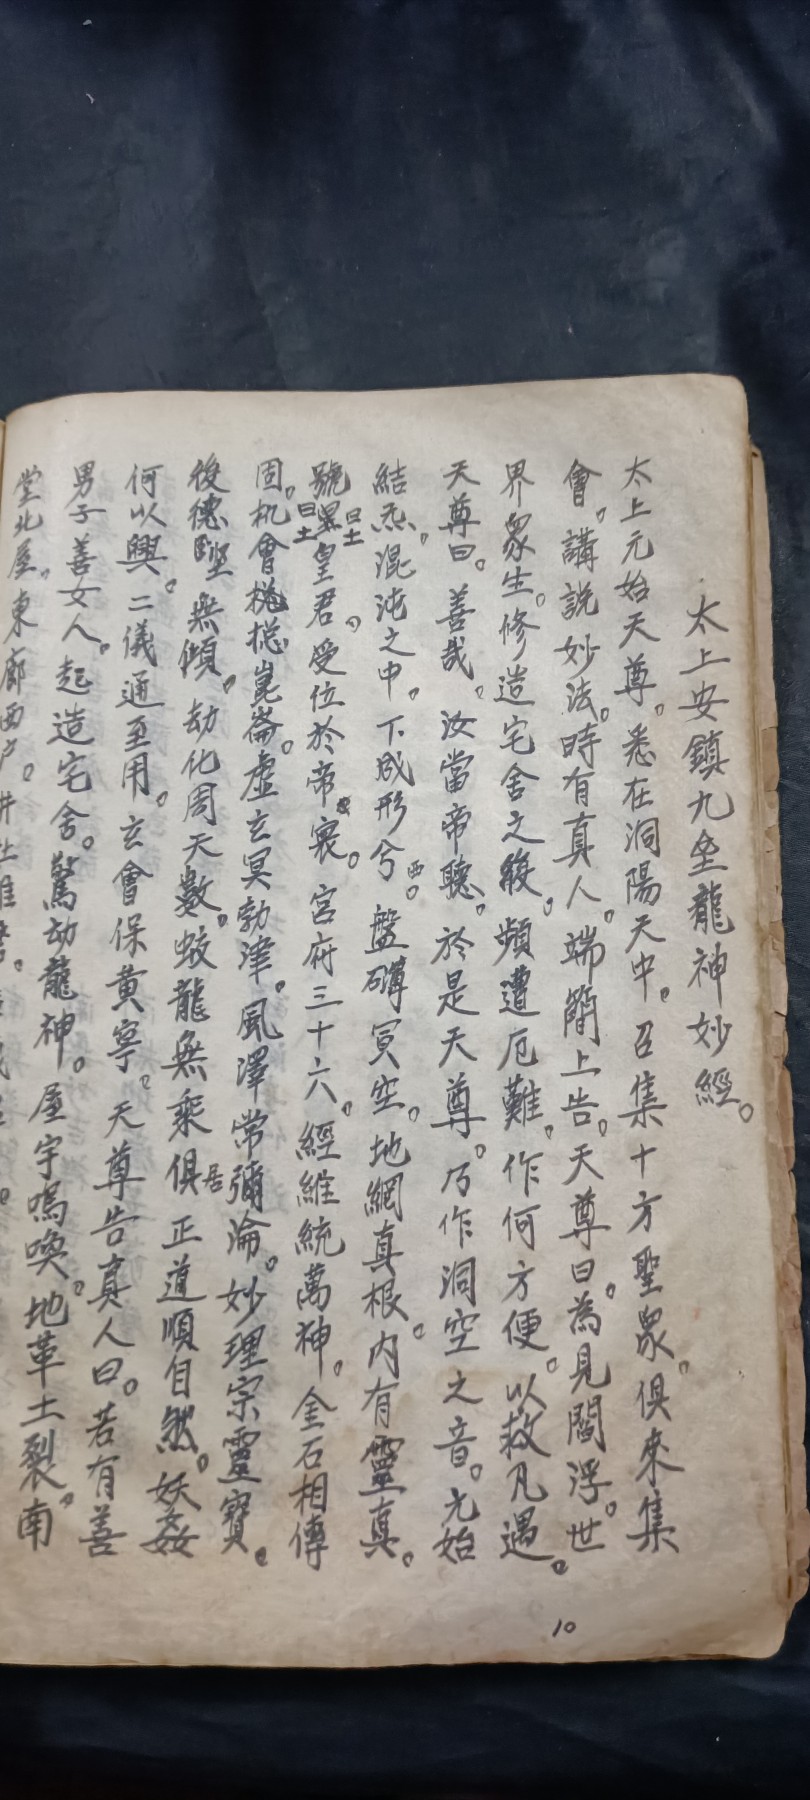 太上安鎮九垒龍神妙經。
太上元始天尊。悉在洞陽天中。召集十方聖眾。俱來集
會。講説妙法。時有真人。端簡上告。天尊曰。為見閻浮。世
界眾生。修造宅舍之後。頻遭厄難。作何方便。以救凡遇。
天尊曰。善哉。汝當帝聽。於是天尊。乃作洞空之音。元始
結炁。混沌之中。下成形兮。盤礴冥空。地網真根。内有靈真。
西
號 皇君。受位於帝 裏。宮府三十六。經維統萬神。金石相傳
日土 日土
固。机會 摠崑崙。虛玄冥勃津。風澤常彌淪。妙理宗靈寶。
後德 無傾。劫化周天數。蛟龍無乘俱 正道順自然。妖姦
居
何以興。二儀通至用。玄會保黃寧。天尊告真人曰。若有善
男子善女人。起造宅舍。驚劫龍神。屋宇鳴喚。地革土裂。南
堂北屋。東廊西户。井
10